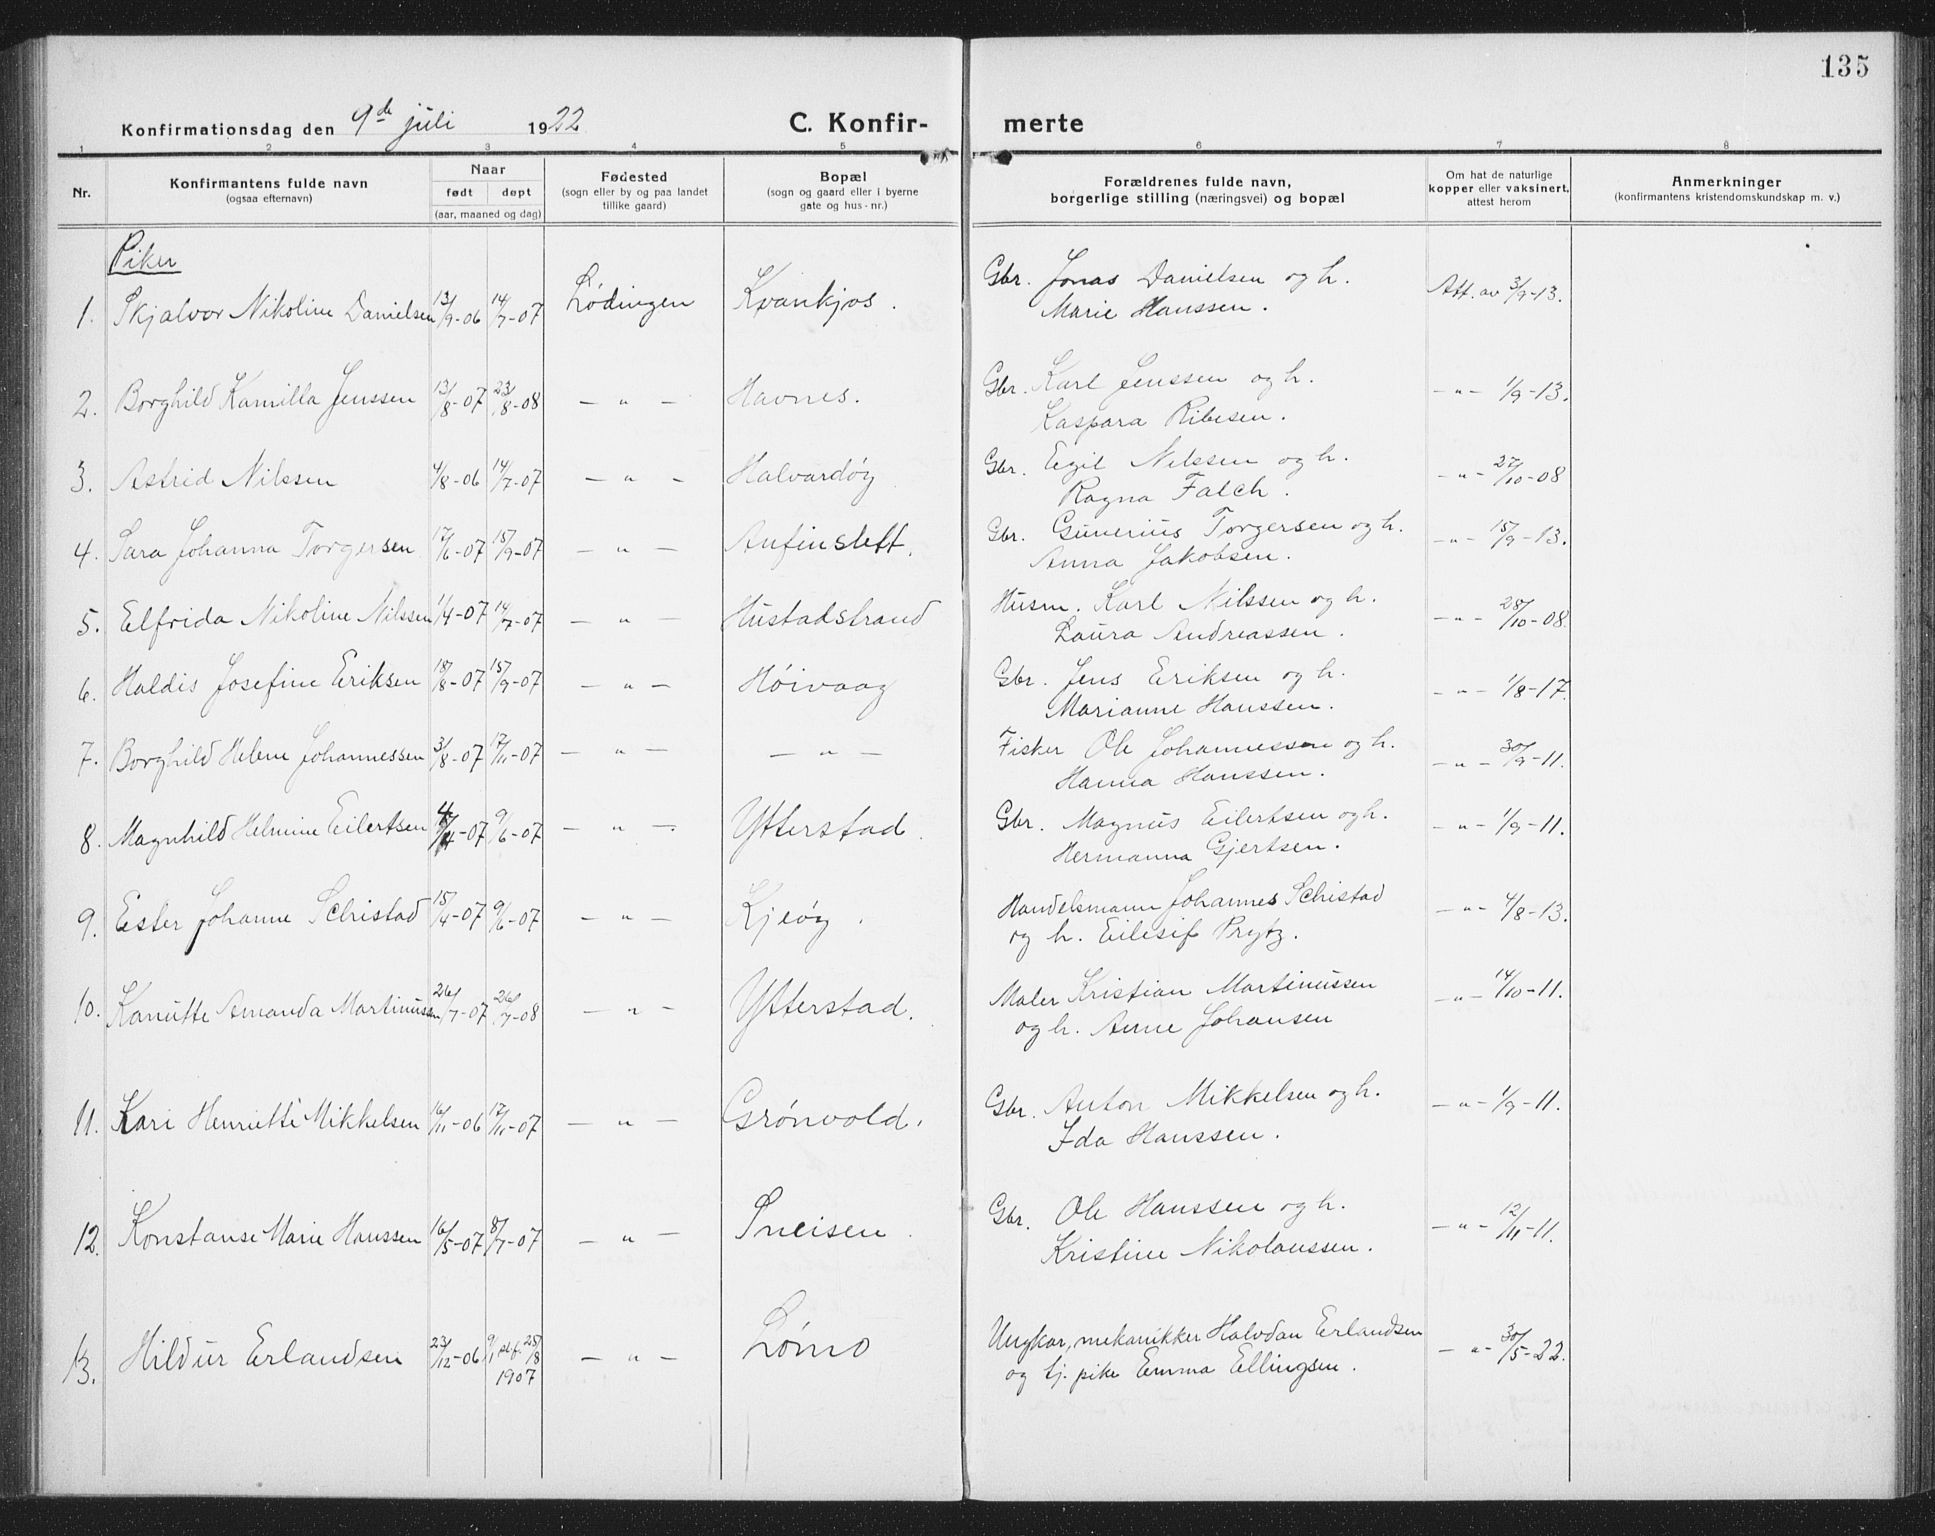 135
Konfirmationsdag den 9de juli 1922
C. Konfir- merte
1 2 3 4 5 6 7 8
Nr.
Konfirmantens fulde navn
(ogsaa efternavn)
Naar
født døpt
(aar, maaned og dag)
Fødested
(sogn eller by og paa landet
tillike gaard)
Bopæl
(sogn og gaard eller i byerne
gate og hus-nr.)
Forældrenes fulde navn,
borgerlige stilling (næringsvei) og bopæl
Om hat de naturlige
kopper eller vaksinert,
attest herom
Anmerkninger
(konfirmantens kristendomskundskap m. v.)
Piker
1. Skjalvor Nikoline Danielsen 13/9-06 14/7-07 Lødingen Kvankjos. Gbr. Jonas Danielsen og h. Att. av 3/9-13.
Marie Hanssen.
2. Borghild Kamilla Jenssen 13/8-07 23/8-08 — " — Havnes. Gbr. Karl Jenssen og h. — " — 1/9-13.
Kaspara Ribesen.
3. Astrid Nilssen 4/8-06 14/7-07 — " — Halvardøy Gbr. Egil Nilssen og h. — " — 27/10-08
Ragna Falch.
4. Sara Johanna Torgersen 17/6-07 15/9-07 — " — Anfinslett. Gbr. Gunerius Torgersen og h. — " — 15/9-13.
Anna Jakobsen.
5. Elfrida Nikoline Nilssen 1/4-07 14/7-07 — " — Hustadstrand Husm. Karl Nilssen og h. — " — 28/10-08.
Laura Andreassen.
6. Haldis Josefine Eriksen 18/8-07 15/9-07 — " — Høivaag Gbr. Jens Eriksen og h. — " — 1/8-17.
Marianne Hanssen.
7. Borghild Helene Johannessen 3/8-07 17/11-07 — " — — " — Fisker Ole Johannessen og h. — " — 30/9-11.
Hanna Hanssen.
8. Magnhild Helmine Eilertsen 4/4-07 9/6-07 — " — Ytterstad. Gbr. Magnus Eilertsen og h. — " — 1/9-11.
Hermanna Gjertsen.
9. Ester Johanne Schistad 15/4-07 9/6-07 — " — Kjeøy. Handelsmann Johannes Schistad — " — 4/8-13.
og h. Eilisif Prytz.
10. Kanutte Amanda Martinussen 26/7-07 26/7-08 — " — Ytterstad. Maler Kristian Martinussen — " — 14/10-11.
og h. Anne Johansen
11. Kari Henriette Mikkelsen 16/11-06 17/11-07 — " — Grønvold. Gbr. Anton Mikkelsen og h. — " — 1/9-11.
Ida Hanssen.
12. Konstanse Marie Hanssen 16/5-07 8/7-07 — " — Sneisen. Gbr. Ole Hanssen og h. — " — 12/11-11.
Kristine Nikolaussen.
13. Hildur Erlandsen 23/12-06 9/1 st.f. 25/8 1907 — " — Lømo Ungkar, mekanikker Halvdan Erlandsen — " — 30/5-22.
og tj. pike Emma Ellingsen.